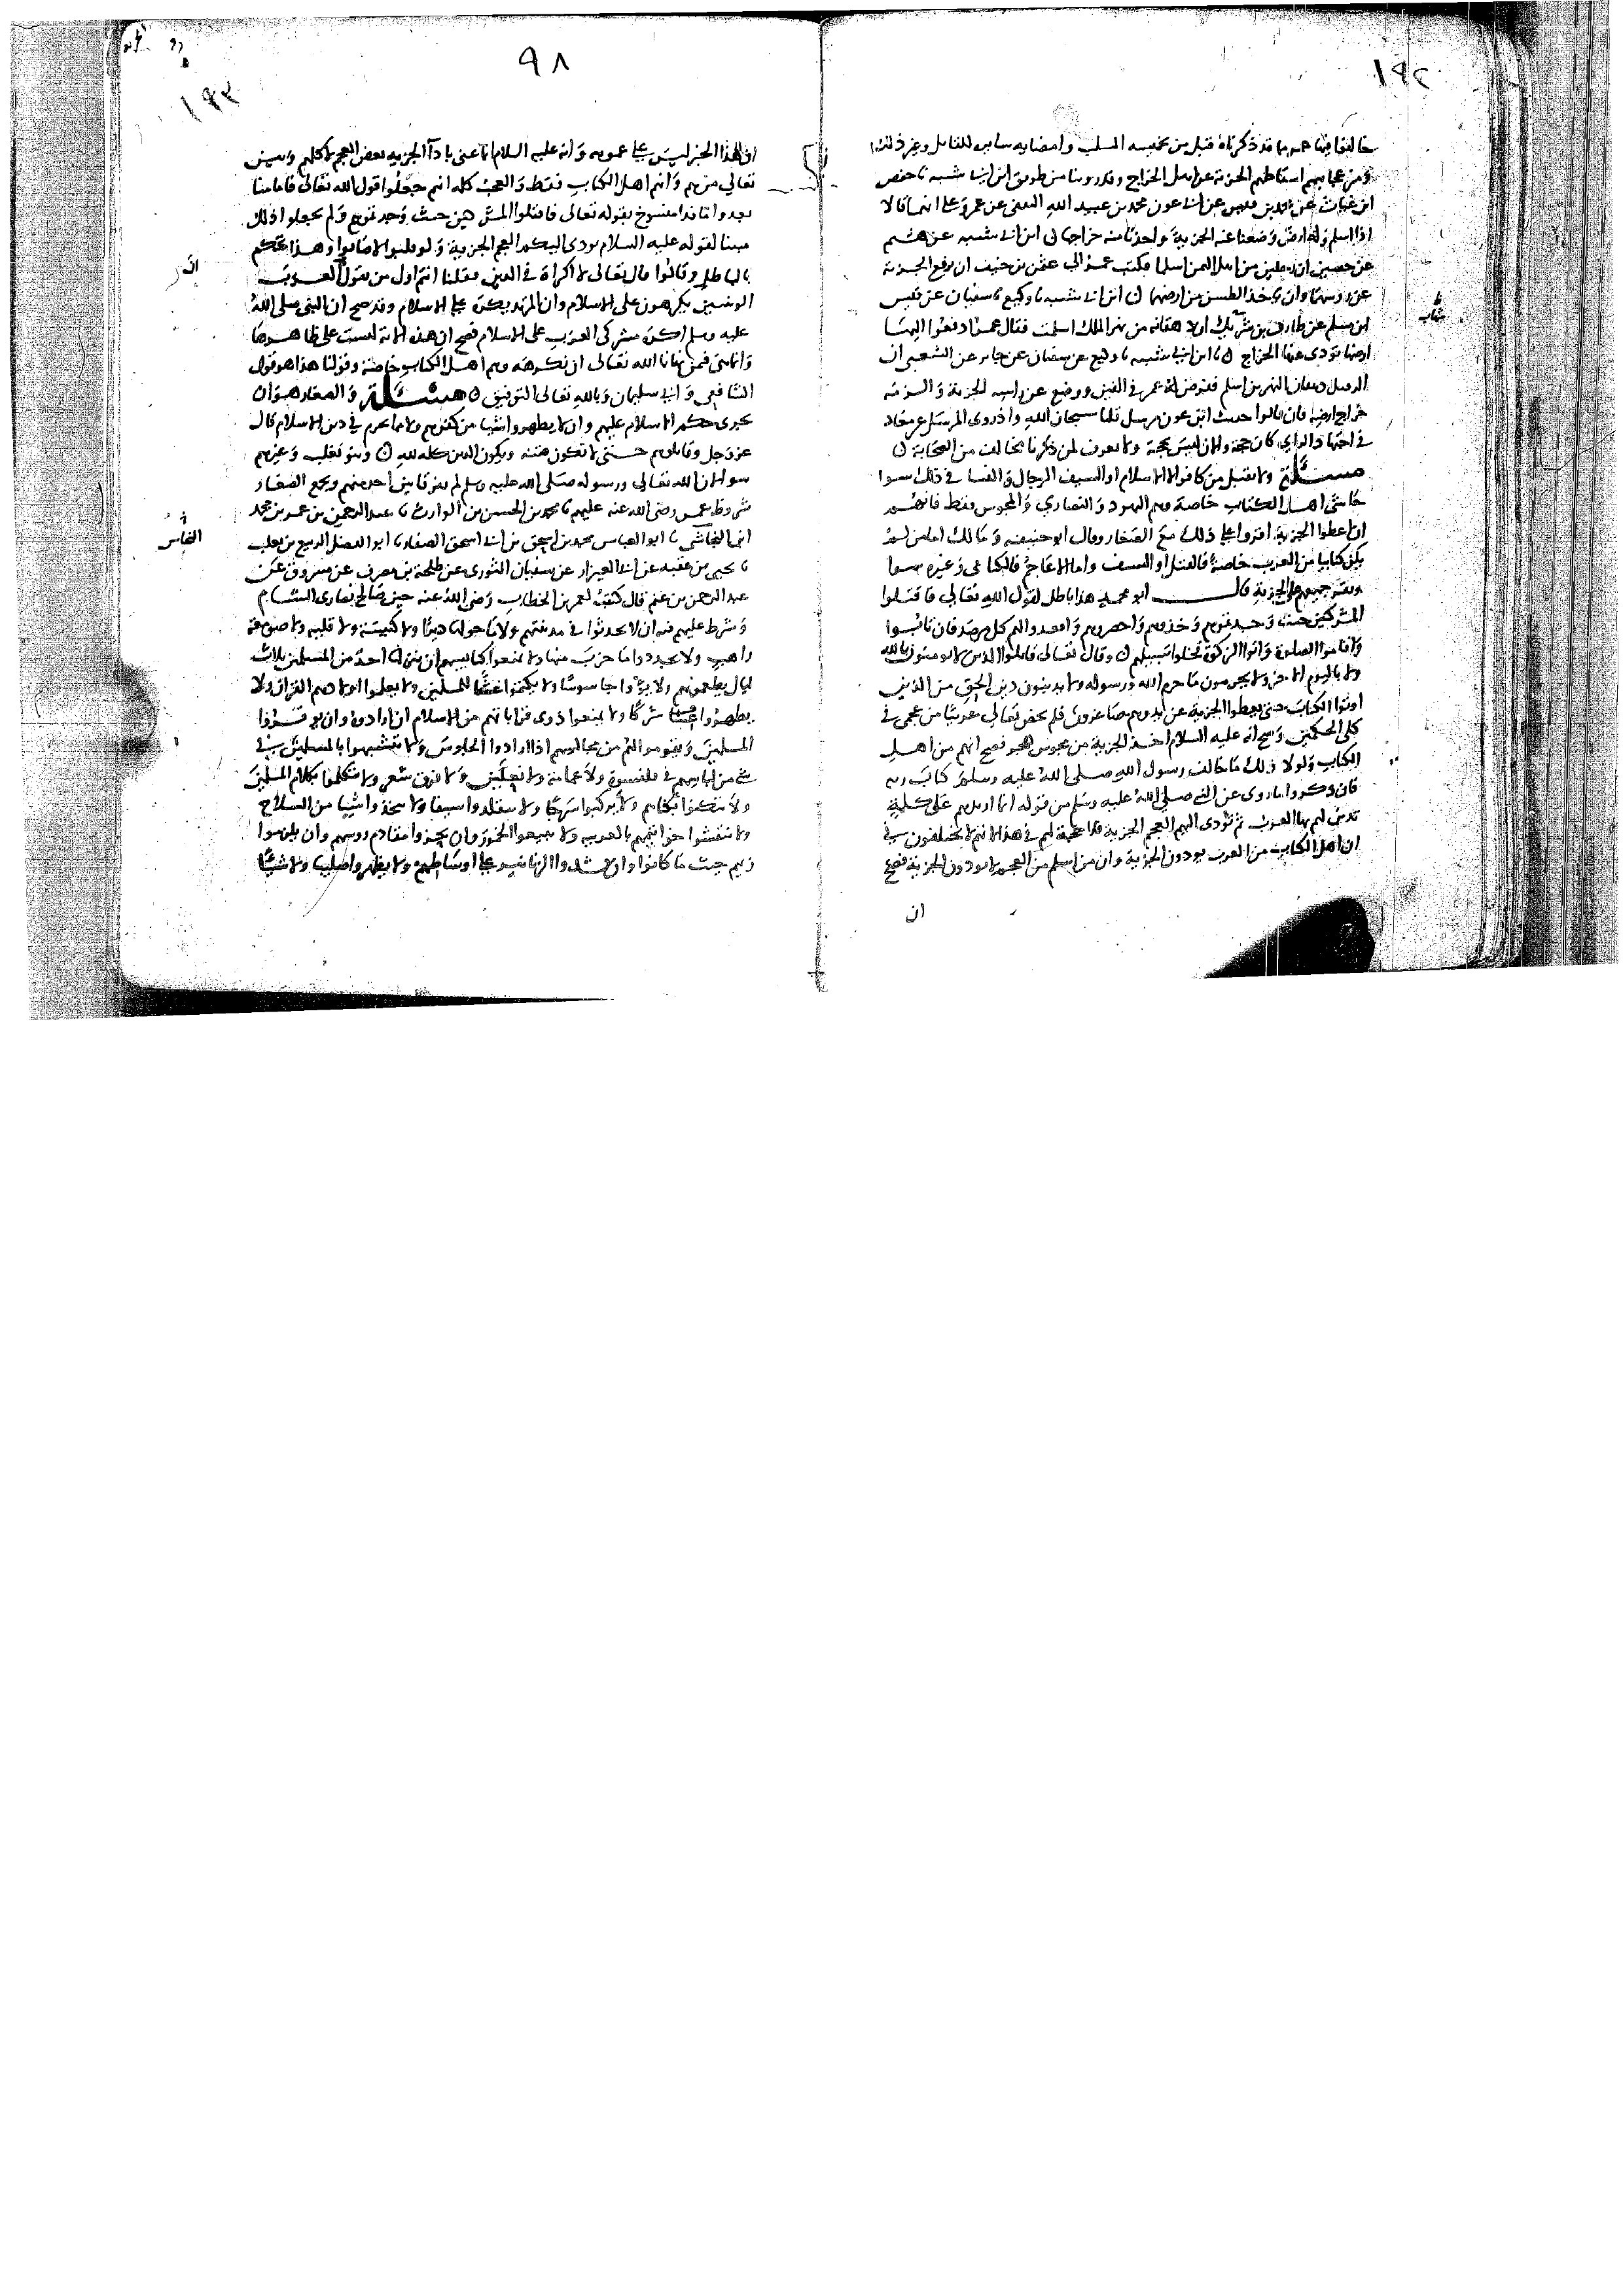 ١٩٢
خالفا فيها عمر بما قد ذكرناه قبل من تخميسه السلب وامضايه سايره للقاتل وغير ذلك
ومن عجايبهم اسقاطهم الجزية عن اهل الخراج وقد روينا من طريق ابن ابي شيبه نا حفص
ابن غياث عن محمد بن قيس عن ابي عون محمد بن عبيد الله الثقفي عن عمر وعلي انهما قالا
اذا اسلم وله ارض وضعنا عنه الجزية واخذنا منه خراجها ن ابن ابي شيبه عن هشيم
عن حصين ان رجلين من اهل اليس اسلما فكتب عمر الى عثمن بن حنيف ان يرفع الجزية
عن روسهما وان ياخذ الطسق من ارضهما ن ابن ابي شيبه نا وكيع نا سفيان عن قيس
ابن مسلم عن طارق بن شهاب ان دهقانة من نهر الملك اسلمت فقال عمر ادفعوا اليها
ارضها تودي عنها الخراج ن نا ابن ابي شيبه نا وكيع عن سفيان عن جابر عن الشعبي ان
الرفيل دهقان النهرين اسلم ففرض له عمر في الفين ووضع عن راسه الجزية والزمه
خراج ارضه فان قالوا حديث ابن عون مرسل قلنا سبحان الله واذ روى المرسل عن معاذ
في اجتهاد الراي كان حجة والان ليس بحجة ولا يعرف لمن ذكرنا مخالف من الصحابة ن
مسئلة ولا يقبل من كافر الا الاسلام او السيف الرجال والنسا في ذلك سوا
حاشى اهل الكتاب خاصة وهم اليهود والنصارى والمجوس فقط فانهم
ان اعطوا الجزية اقروا على ذلك مع الصغار وقال ابو حنيفه ومالك اما من لم
يكن كتابيا من العرب خاصة فالقتل او السيف واما الاعاجم فالكتابي وغيره سوا
ويقر جميعهم على الجزية قال ابو محمد هذا باطل لقول الله تعالى فاقتلوا
المشركين حيث وجدتموهم وخذوهم واحصروهم واقعدوا لهم كل مرصد فان تابوا
واقاموا الصلوة واتوا الزكوة فخلوا سبيلهم ن وقال تعالى قاتلوا الذين لا يومنون بالله
ولا باليوم الاخر ولا يحرمون ما حرم الله ورسوله ولا يدينون دين الحق من الذين
اوتوا الكتاب حتى يعطوا الجزية عن يد وهم صاغرون فلم يخص تعالى عربيا من عجمي في
كلى الحكمين وصح انه عليه السلام اخذ الجزية من مجوس هجر فصح انهم من اهل
الكتاب ولولا ذلك ما خالف رسول الله صلى الله عليه وسلم كتاب ربه
فان ذكروا ما روى عن النبي صلى الله عليه وسلم من قوله انما اريدهم على كلمة
تدين لهم بها العرب ثم تودي اليهم العجم الجزية فلا حجة لهم في هذا لانهم لا يختلفون في
ان اهل الكتاب من العرب يودون الجزية وان من اسلم من العجم لا يودون الجزية فصح
ان
شهاب
٩٨
١٩٣
ان هذا الخبر ليس على عمومه وانه عليه السلام انما عنى بادآ الجزيه بعض العجم لا كلهم وبين
تعالى من هم وانهم اهل الكتاب فقط والعجب كله انهم جعلوا قول الله تعالى فاما منا
بعد واما فدا منسوخ بقوله تعالى فاقتلوا المشركين حيث وجدتموهم ولم يجعلوا ذلك
مبينا لقوله عليه السلام تودي اليكم العجم الجزية ولو قلبوا لاصابوا وهذا تحكم
بالباطل وقالوا قال تعالى لا اكراه في الدين فقلنا انتم اول من يقول ان العرب
الوثنيين يكرهون على الاسلام وان المرتد يكره على الاسلام وقد صح ان النبي صلى الله
عليه وسلم اكره مشركي العرب على الاسلام فصح ان هذه الاية ليست على ظاهرها
وانما هي فيمن نهانا الله تعالى ان نكرهه وهم اهل الكتاب خاصة وقولنا هذا هو قول
الشافعي وابي سليمان وبالله تعالى التوفيق ن مسئلة والصغار هو ان
يجري حكم الاسلام عليهم وان لا يظهروا شيا من كفرهم ولا مما يحرم في دين الاسلام قال
عز وجل وقاتلوهم حتى لا تكون فتنة ويكون الدين كله لله ن وبنو تغلب وغيرهم
سوا لان الله تعالى ورسوله صلى الله عليه وسلم لم يفرقا بين احد منهم ويجمع الصغار
شروط عمر رضي الله عنه عليهم نا محمد بن الحسن بن الوارث نا عبد الرحمن بن عمر بن محمد
ابن النحاس نا ابو العباس محمد بن اسحق بن ابي اسحق الصفار نا ابو الفضل الربيع بن تغلب
نا يحيى بن عقبه عن ابي العيزار عن سفيان الثوري عن طلحة بن مصرف عن مسروق عن
عبد الرحمن بن غنم قال كتبت لعمر بن الخطاب رضي الله عنه حين صالح نصارى الشام
وشرط عليهم فيه ان لا يحدثوا في مدينتهم ولا ما حولها ديرا ولا كنيسة ولا قلية ولا صومعة
راهب ولا يجددوا ما خرب منها ولا يمنعوا كنايسهم ان ينزلها احد من المسلمين ثلاث
ليال يطعمونهم ولا يووا جاسوسا ولا يكتموا غشا للمسلمين ولا يعلموا اولادهم القران ولا
يظهروا شركا ولا يمنعوا ذوي قراباتهم من الاسلام ان ارادوه وان يوقروا
المسلمين ويقوموا لهم من مجالسهم اذا ارادوا الجلوس ولا يتشبهوا بالمسلمين في
شي من لباسهم في قلنسوة ولا عمامة ولا نعلين ولا فرق شعر ولا يتكلموا بكلام المسلمين
ولا يتكنوا بكناهم ولا يركبوا سرجا ولا يتقلدوا سيفا ولا يتخذوا شيا من السلاح
ولا ينقشوا خواتيمهم بالعربية ولا يبيعوا الخمور وان يجزوا مقادم روسهم وان يلزموا
زيهم حيث ما كانوا وان يشدوا الزنانير على اوساطهم ولا يظهروا صليبا ولا شيا
ان
النحاس